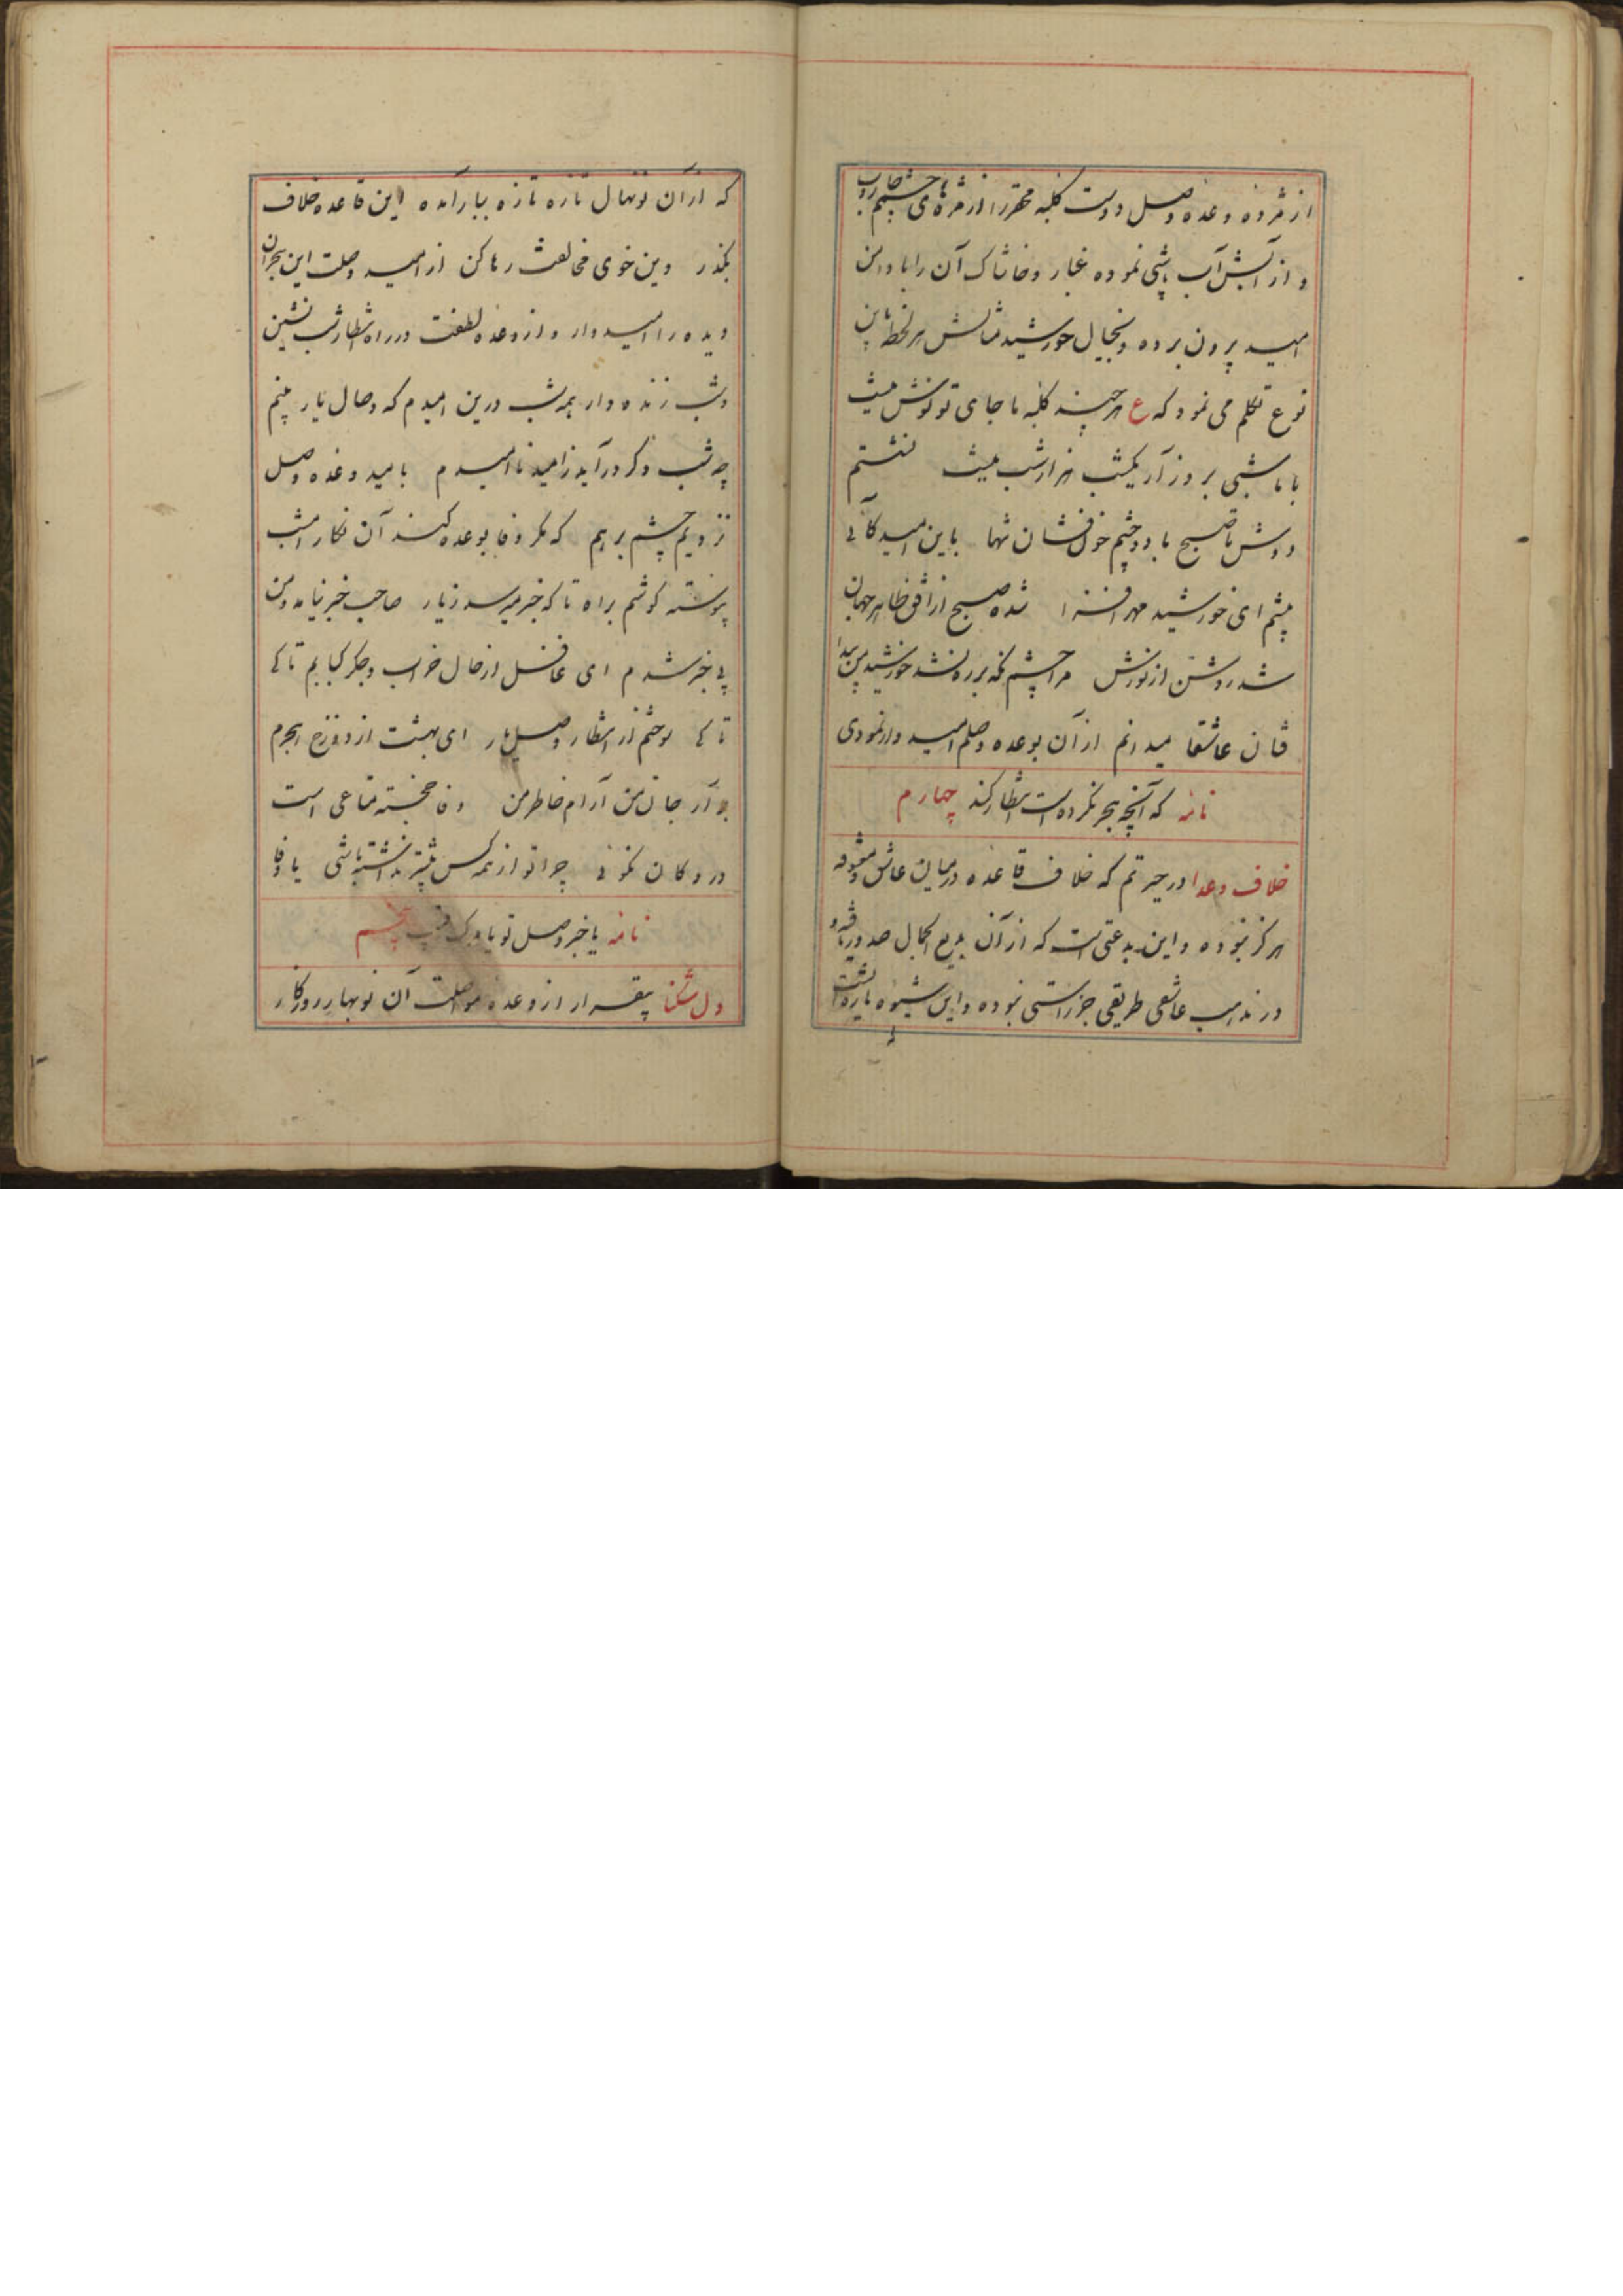 از مژده وعده وصل دوست کلبه محقر را از مژه های چشم جاروب
و از آبش آب پاشی نموده غبار و خاشاک آن را با دامن
امید برون برده و بخیال خورشید مثالش هر لحظه باین
نوع تکلم می نمود که ع هر چند کلبه ما جای تو نوش نیست
با ما شبی بروز آر یکشب هزار شب نیست نشستم
دوش تا صبح با دو چشم خون فشان تنها باین امید کائی
پیشم ای خورشید مهر افزا شده صبح از افق ظاهر جهان
شد روشن از نورش مرا چشم که بر ره نشد خورشید من پیدا
فان عاشقا میدانم از آن بوعده وصلم امیدوار نمودی
نامه که آنچه هجر نکرده است انتظار کند چهارم
خلاف وعدا در حیرتم که خلاف قاعده در میان عاشق و معشوقه
هرگز نبوده و این بدعتی است که از آن بدیع الجمال صدور یافته و
در مذهب عاشقی طریقی جز راستی نبوده و این شیوه
که از آن نونهال تازه تازه ببار آمده این قاعده خلاف
بگذر وین خوی مخالفت رها کن از امید وصلت این هجران
دیده را امیدوار و از وعده لطفت در راه انتظار شب نشین
وشب زنده دار همه شب درین امیدم که وصال یار بینم
چه شب دگر درآید ز امید ناامیدم بامید وعده وصل
نزدیم چشم بر هم که مگر وفا بوعده کند آن نگار امشب
پیوسته گوشم براه تا که خبر میرسد ز یار صاحب خبر نیامد و من
بی خبر شدم ای غافل از حال خراب و جگر کبابم تا کی
تا کی سوختم از انتظار وصل یار ای بهشت از دوزخ هجرم
برآر جان من آرام خاطر من وفا خجسته متاعی است
در دکان نکوئی چرا تو از همه کس بیشتر نداشته باشی
نامه یا خبر وصل تو یا مرگ پنجم
دل شکنا بیقرار از وعده مواصلت آن نوبهار روزگار